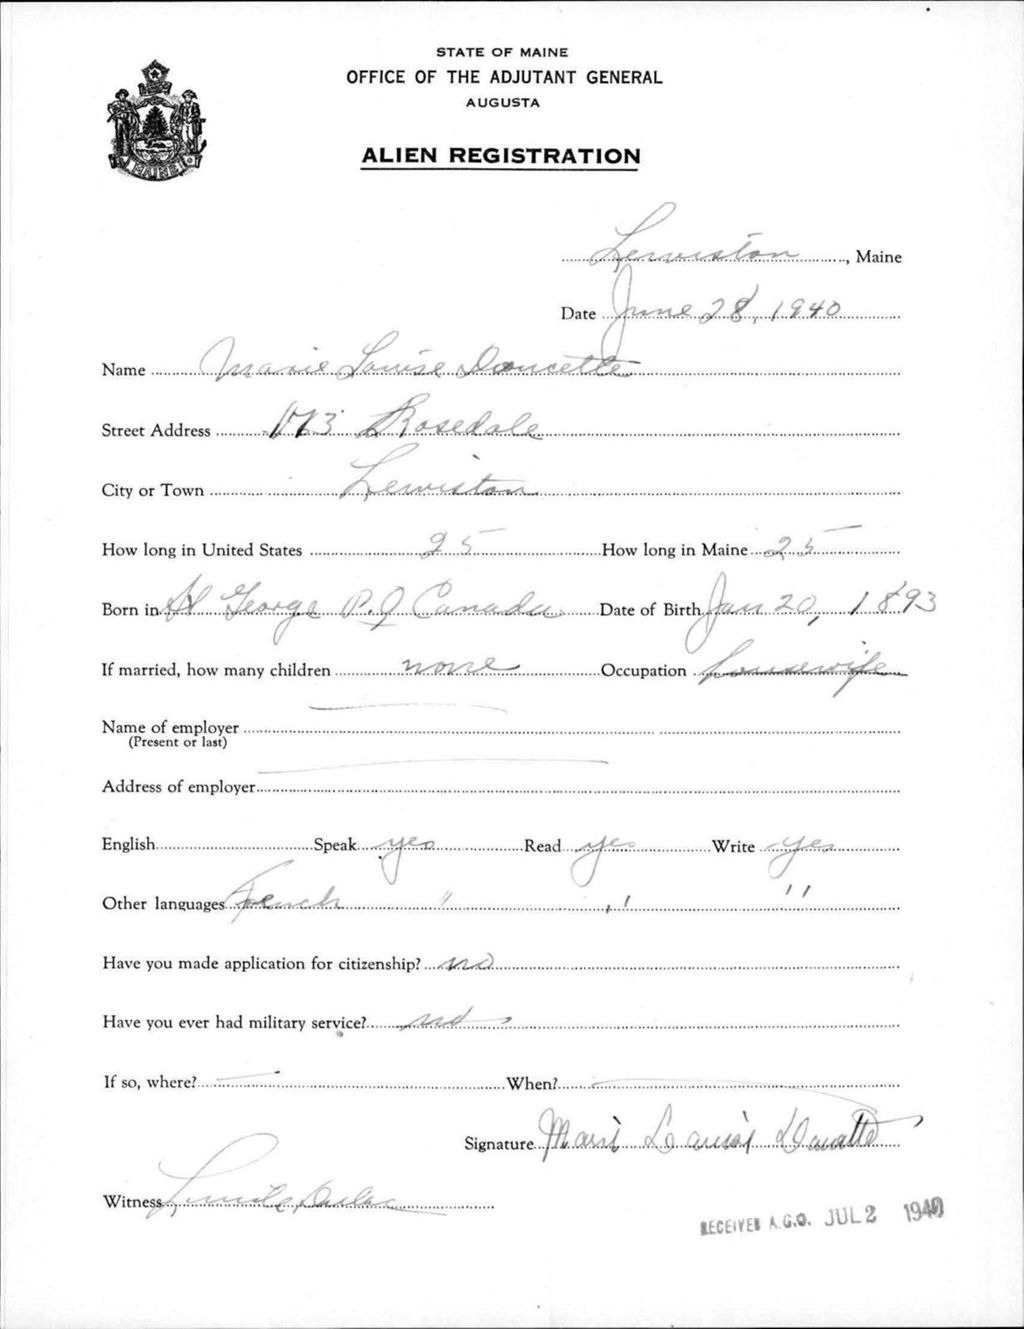 STATE OF MAINE
OFFICE OF THE ADJUTANT GENERAL
AUGUSTA
ALIEN REGISTRATION
MAINE
Lewiston, Maine
Date June 28, 1940
Name Marie Louise Doucette
Street Address 173 Rosedale
City or Town Lewiston
How long in United States 25 How long in Maine 25
Born in St George P.Q Canada Date of Birth Jan 20, 1893
If married, how many children none Occupation housewife
Name of employer
(Present or last)
Address of employer
English Speak yes Read yes Write yes
Other languages French " " "
Have you made application for citizenship? no
Have you ever had military service? no
If so, where? — When? —
Signature Marie Louise
Witness
RECEIVED A.G.O. JUL 2 1940